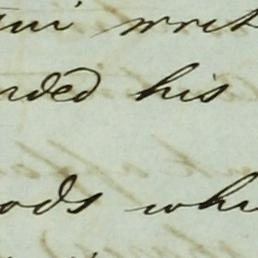 writ
nded his
ods whi